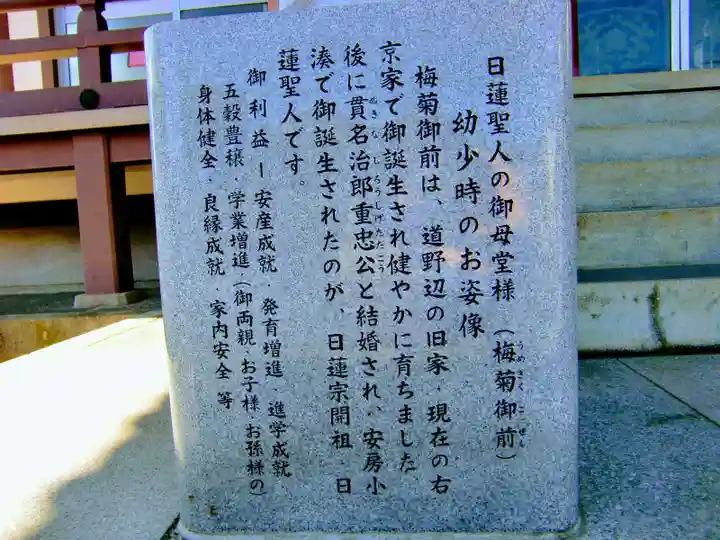 日蓮聖人の御母堂様(梅菊御前)
うめぎくごぜん
幼少時のお姿像
梅菊御前は、道野辺の旧家・現在の右
京家で御誕生され健やかに育ちました
後に貫名治郎重忠公と結婚され、安房小
ぬきなじろうしげただこう
湊で御誕生されたのが、日蓮宗開祖・日
蓮聖人です。
御利益ー安産成就・発育増進・進学成就
五穀豊穣・学業増進(御両親・お子様・お孫様の)
身体健全・良縁成就・家内安全等